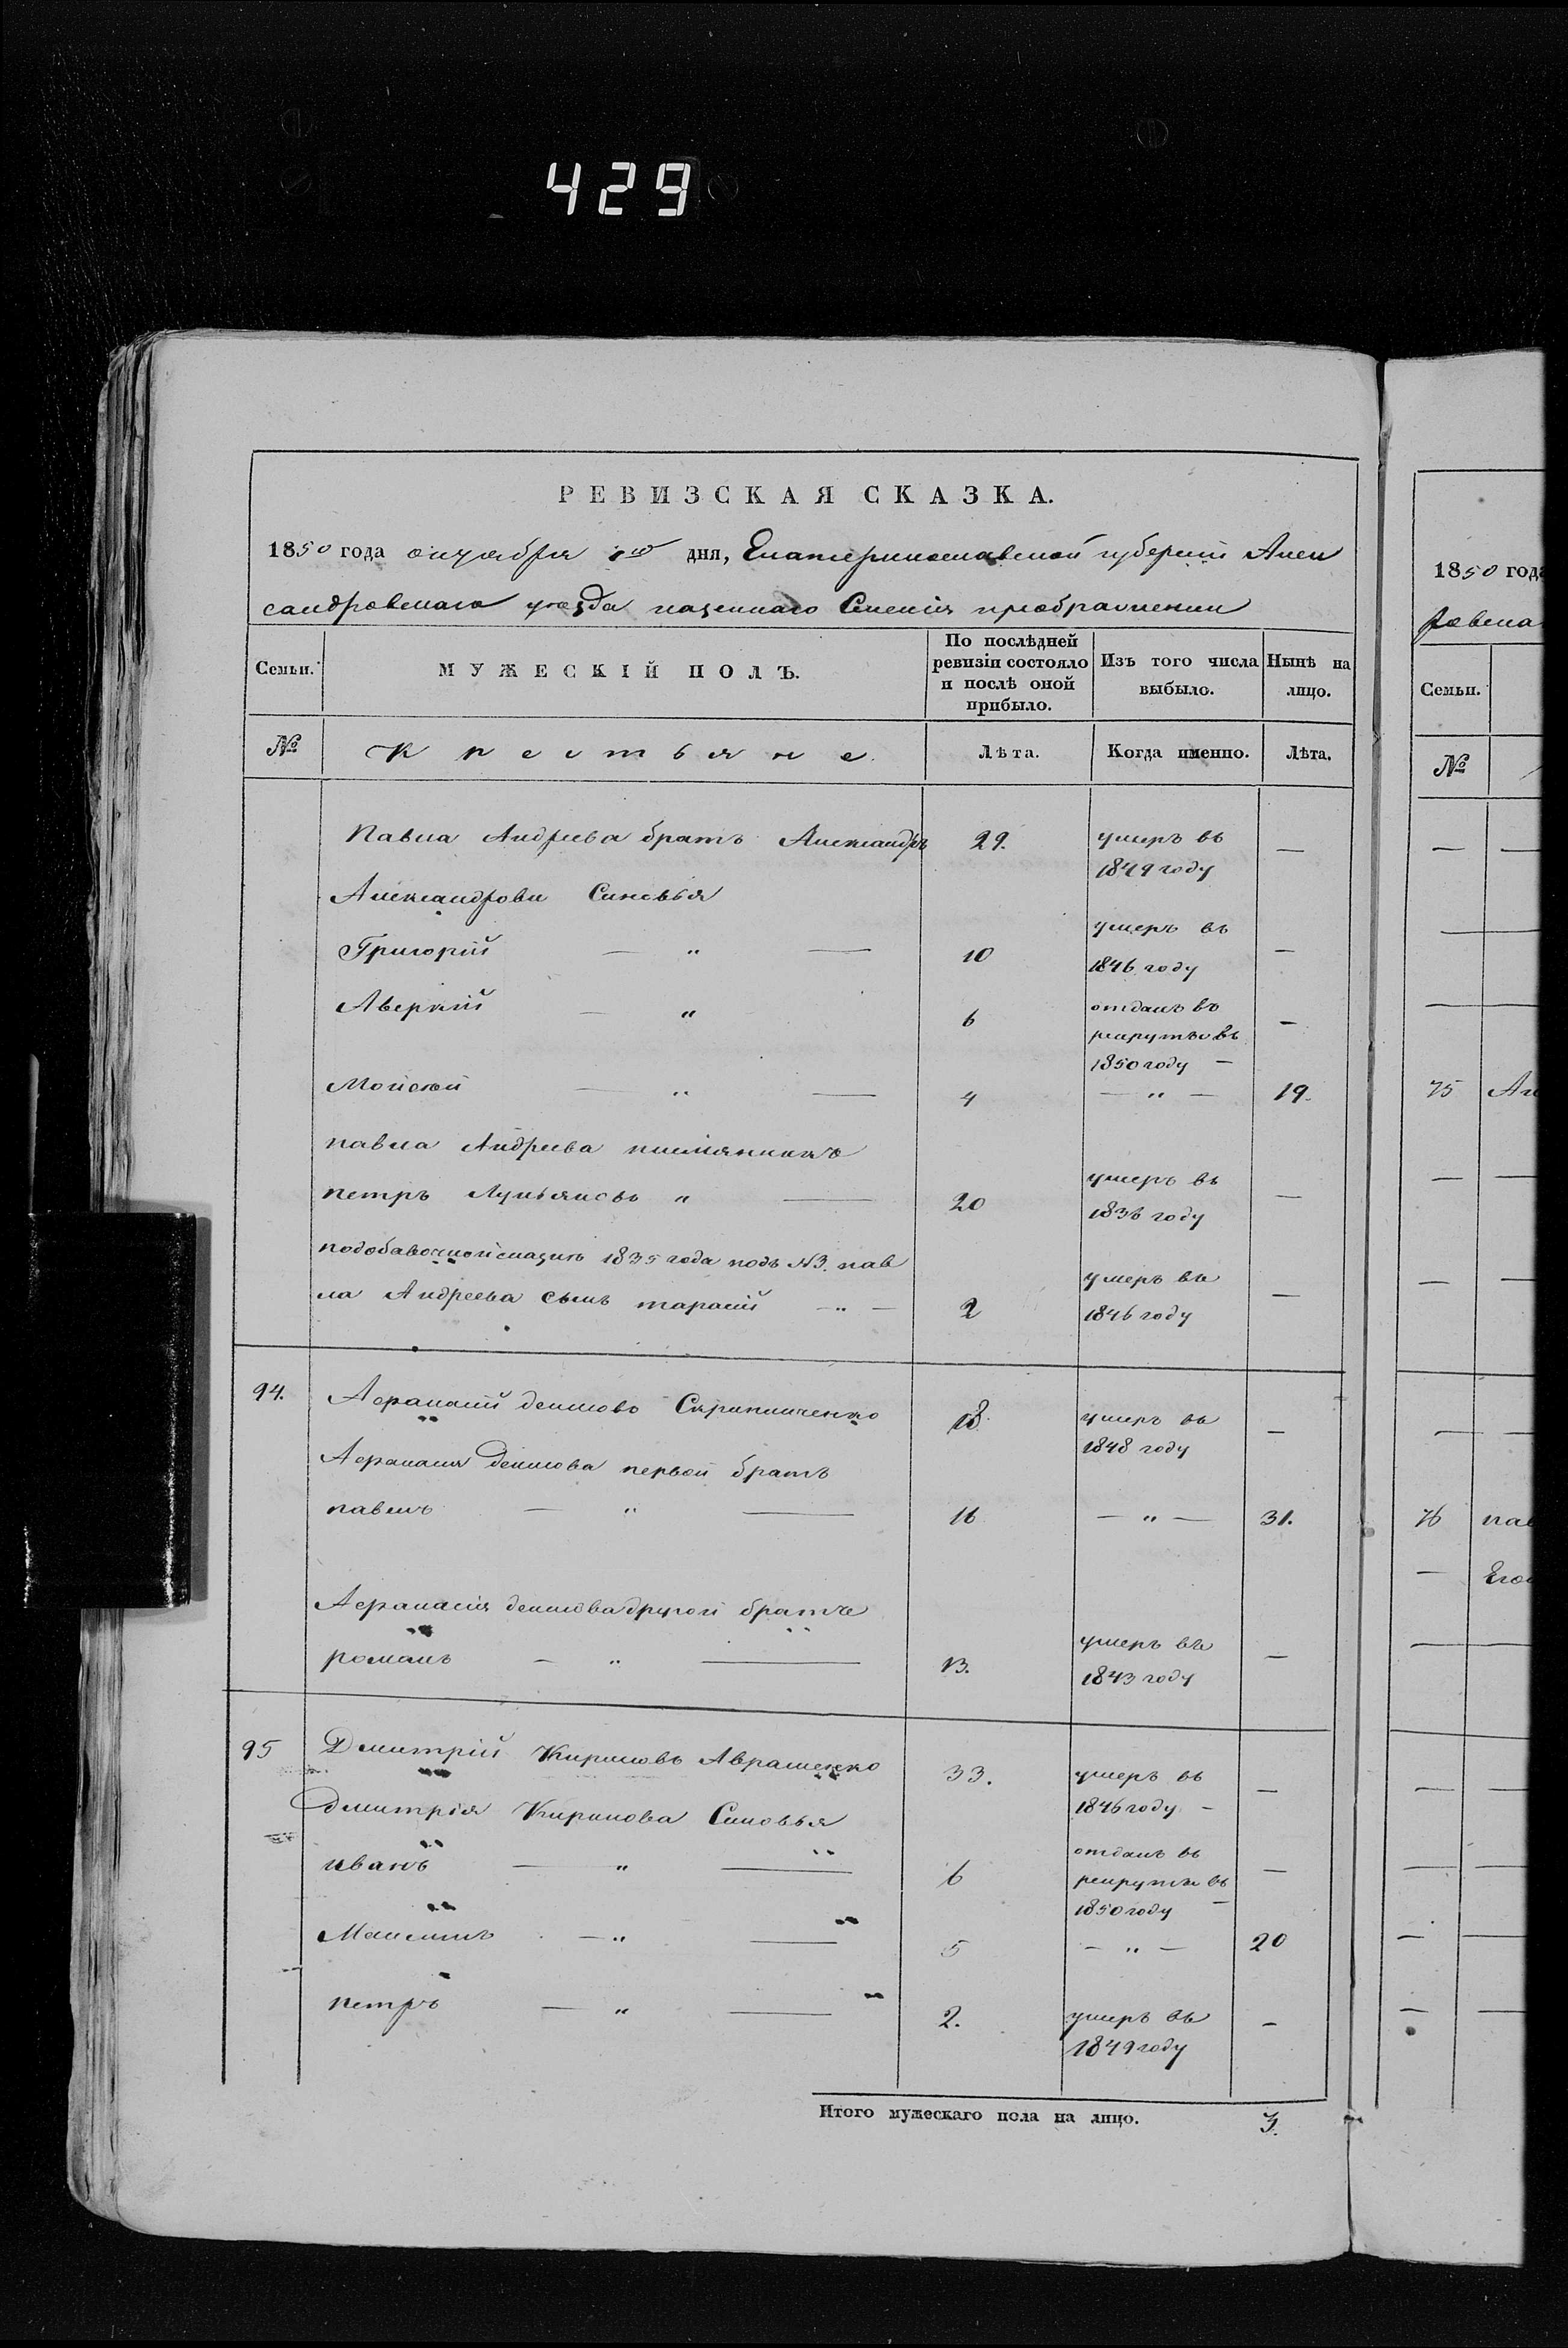 429
РЕВИЗСКАЯ СКАЗКА.
1850 года октября 1го дня, Екатеринославской губернии Алек
сандровскаго уезда казеннаго Селения преображенки
Семьи.
МУЖЕСКІЙ ПОЛЪ.
По послѣдней ревизіи состояло и послѣ оной прибыло.
Изъ того числа выбыло.
Нынѣ на лицо.
№
Крестьяне.
Лѣта.
Когда именно.
Лѣта.
Павла Андреева братъ Александръ 29. умеръ въ 1849 году —
Александрови Синовья
Григорий — " — 10 умеръ въ 1846 году —
Аверкий — " 6 отданъ въ рекруты въ 1850 году — —
Мойсей — " — 4 — " — 19.
павла Андреева племянникъ
петръ Лукьяновъ " — 20 умеръ въ 1836 году —
подобавочной сказки 1835 года подъ №3. пав
ла Андреева сынъ тарасий — " — 2 умеръ въ 1846 году —
94. Афанасий денисовъ 18. умеръ въ 1848 году —
Афанасия Денисова первой братъ
павелъ — " — 16 — " — 31.
Афанасия денисова другой братъ
романъ — " — 13. умеръ въ 1843 году —
95 Дмитрий Кириловъ Аврашенко 33. умеръ въ 1846 году — —
Дмитрия Кирилова Синовья
иванъ — " — 6 отданъ въ рекруты въ 1850 году — —
Максимъ — " — 5 — " — 20
петръ — " — 2. умеръ въ 1849 году —
Итого мужескаго пола на лицо. 3.
1850 года
Семьи.
№
75
76